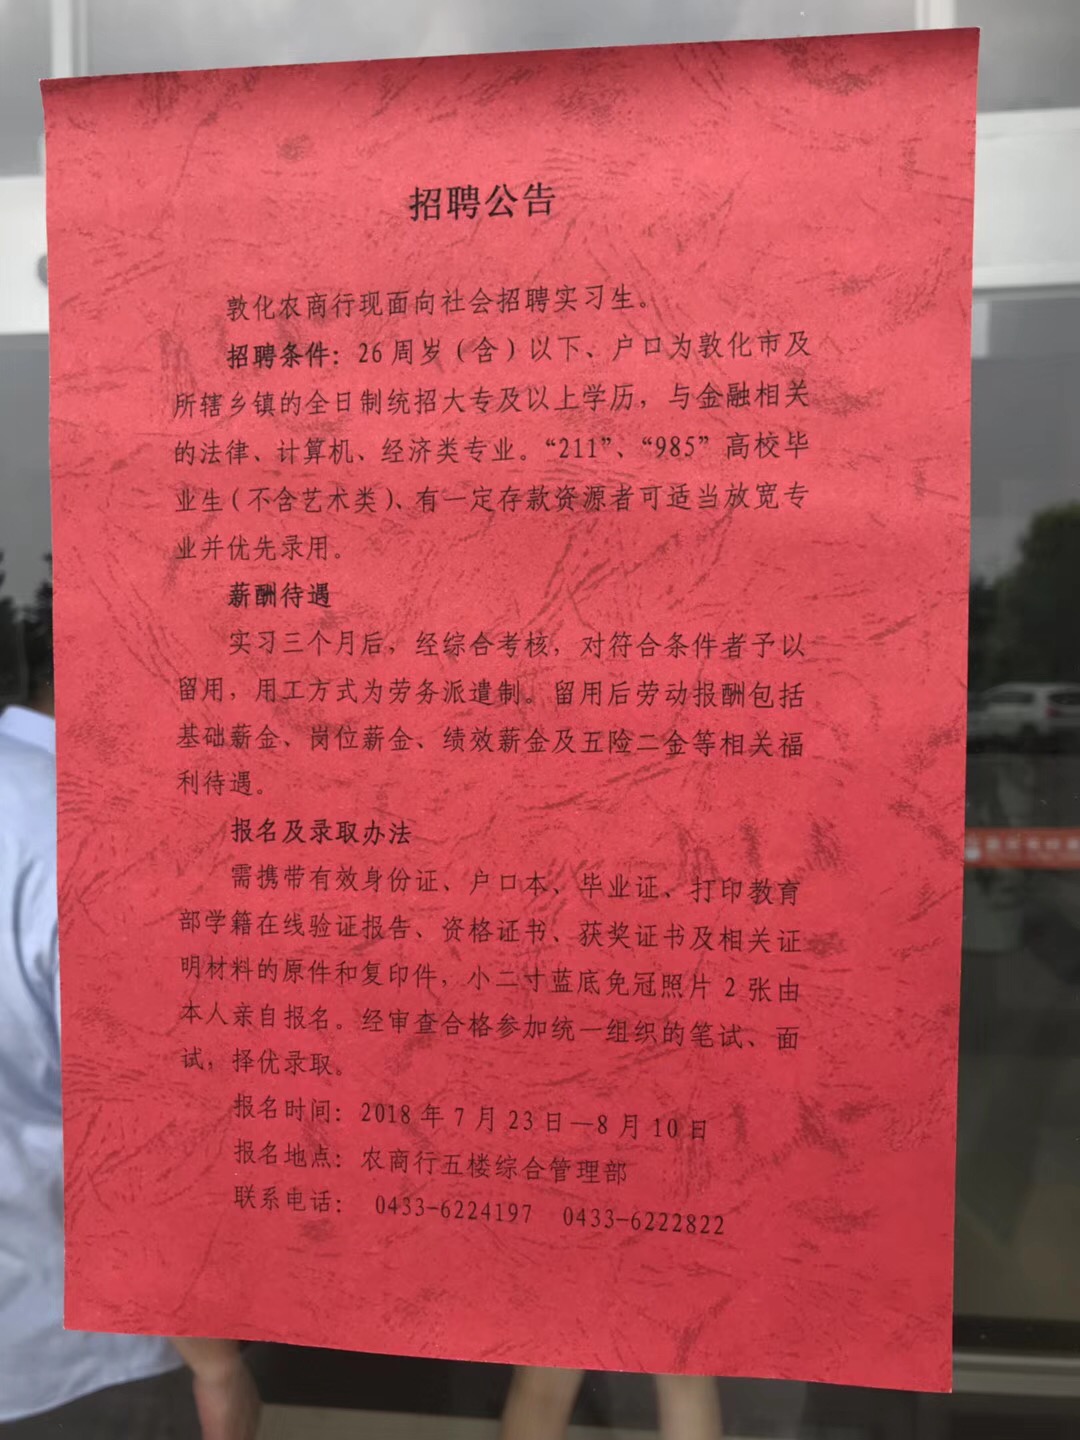 招聘公告
敦化农商行现面向社会招聘实习生。
招聘条件：26周岁（含）以下、户口为敦化市及
所辖乡镇的全日制统招大专及以上学历，与金融相关
的法律、计算机、经济类专业。“211”、“985”高校毕
业生（不含艺术类）、有一定存款资源者可适当放宽专
业并优先录用。
薪酬待遇
实习三个月后，经综合考核，对符合条件者予以
留用，用工方式为劳务派遣制。留用后劳动报酬包括
基础薪金、岗位薪金、绩效薪金及五险二金等相关福
利待遇。
报名及录取办法
需携带有效身份证、户口本、毕业证、打印教育
部学籍在线验证报告、资格证书、获奖证书及相关证
明材料的原件和复印件，小二寸蓝底免冠照片2张由
本人亲自报名。经审查合格参加统一组织的笔试、面
试，择优录取。
报名时间：2018年7月23日—8月10日
报名地点：农商行五楼综合管理部
联系电话： 0433-6224197 0433-6222822